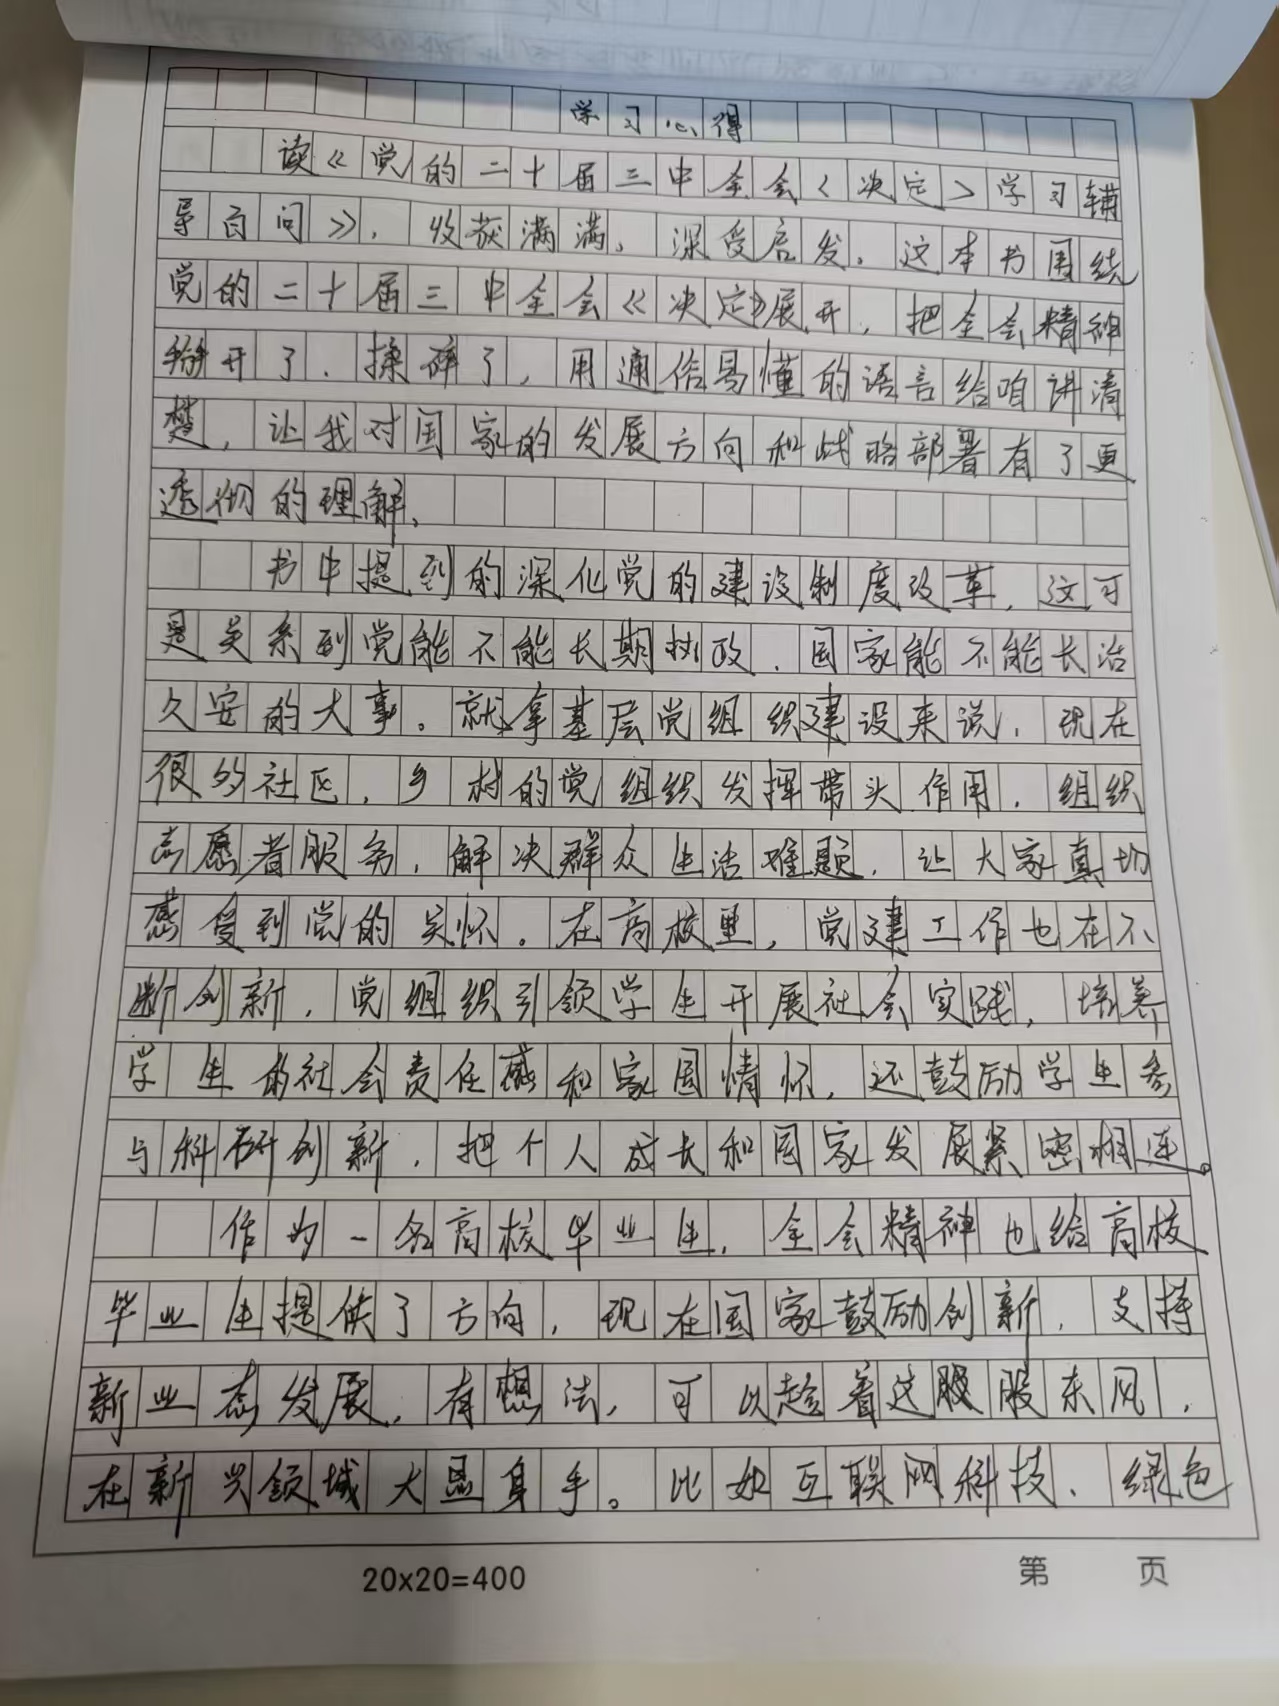 学习心得
读《党的二十届三中全会<决定>学习辅
导百问》，收获满满。深受启发。这本书围绕
党的二十届三中全会《决定》展开，把全会精神
掰开了、揉碎了，用通俗易懂的语言给咱讲清
楚，让我对国家的发展方向和战略部署有了更
透彻的理解。
书中提到的深化党的建设制度改革，这可
是关系到党能不能长期执政、国家能不能长治
久安的大事。就拿基层党组织建设来说，现在
很多社区、乡村的党组织发挥带头作用，组织
志愿者服务，解决群众生活难题，让大家真切
感受到党的关怀。在高校里，党建工作也在不
断创新，党组织引领学生开展社会实践，培养
学生的社会责任感和家国情怀，还鼓励学生参
与科研创新，把个人成长和国家发展紧密相连。
作为一名高校毕业生，全会精神也给高校
毕业生提供了方向，现在国家鼓励创新，支持
新业态发展，有想法，可以趁着这股股东风，
在新兴领域大显身手。比如互联网科技、绿色
20x20=400
第 页